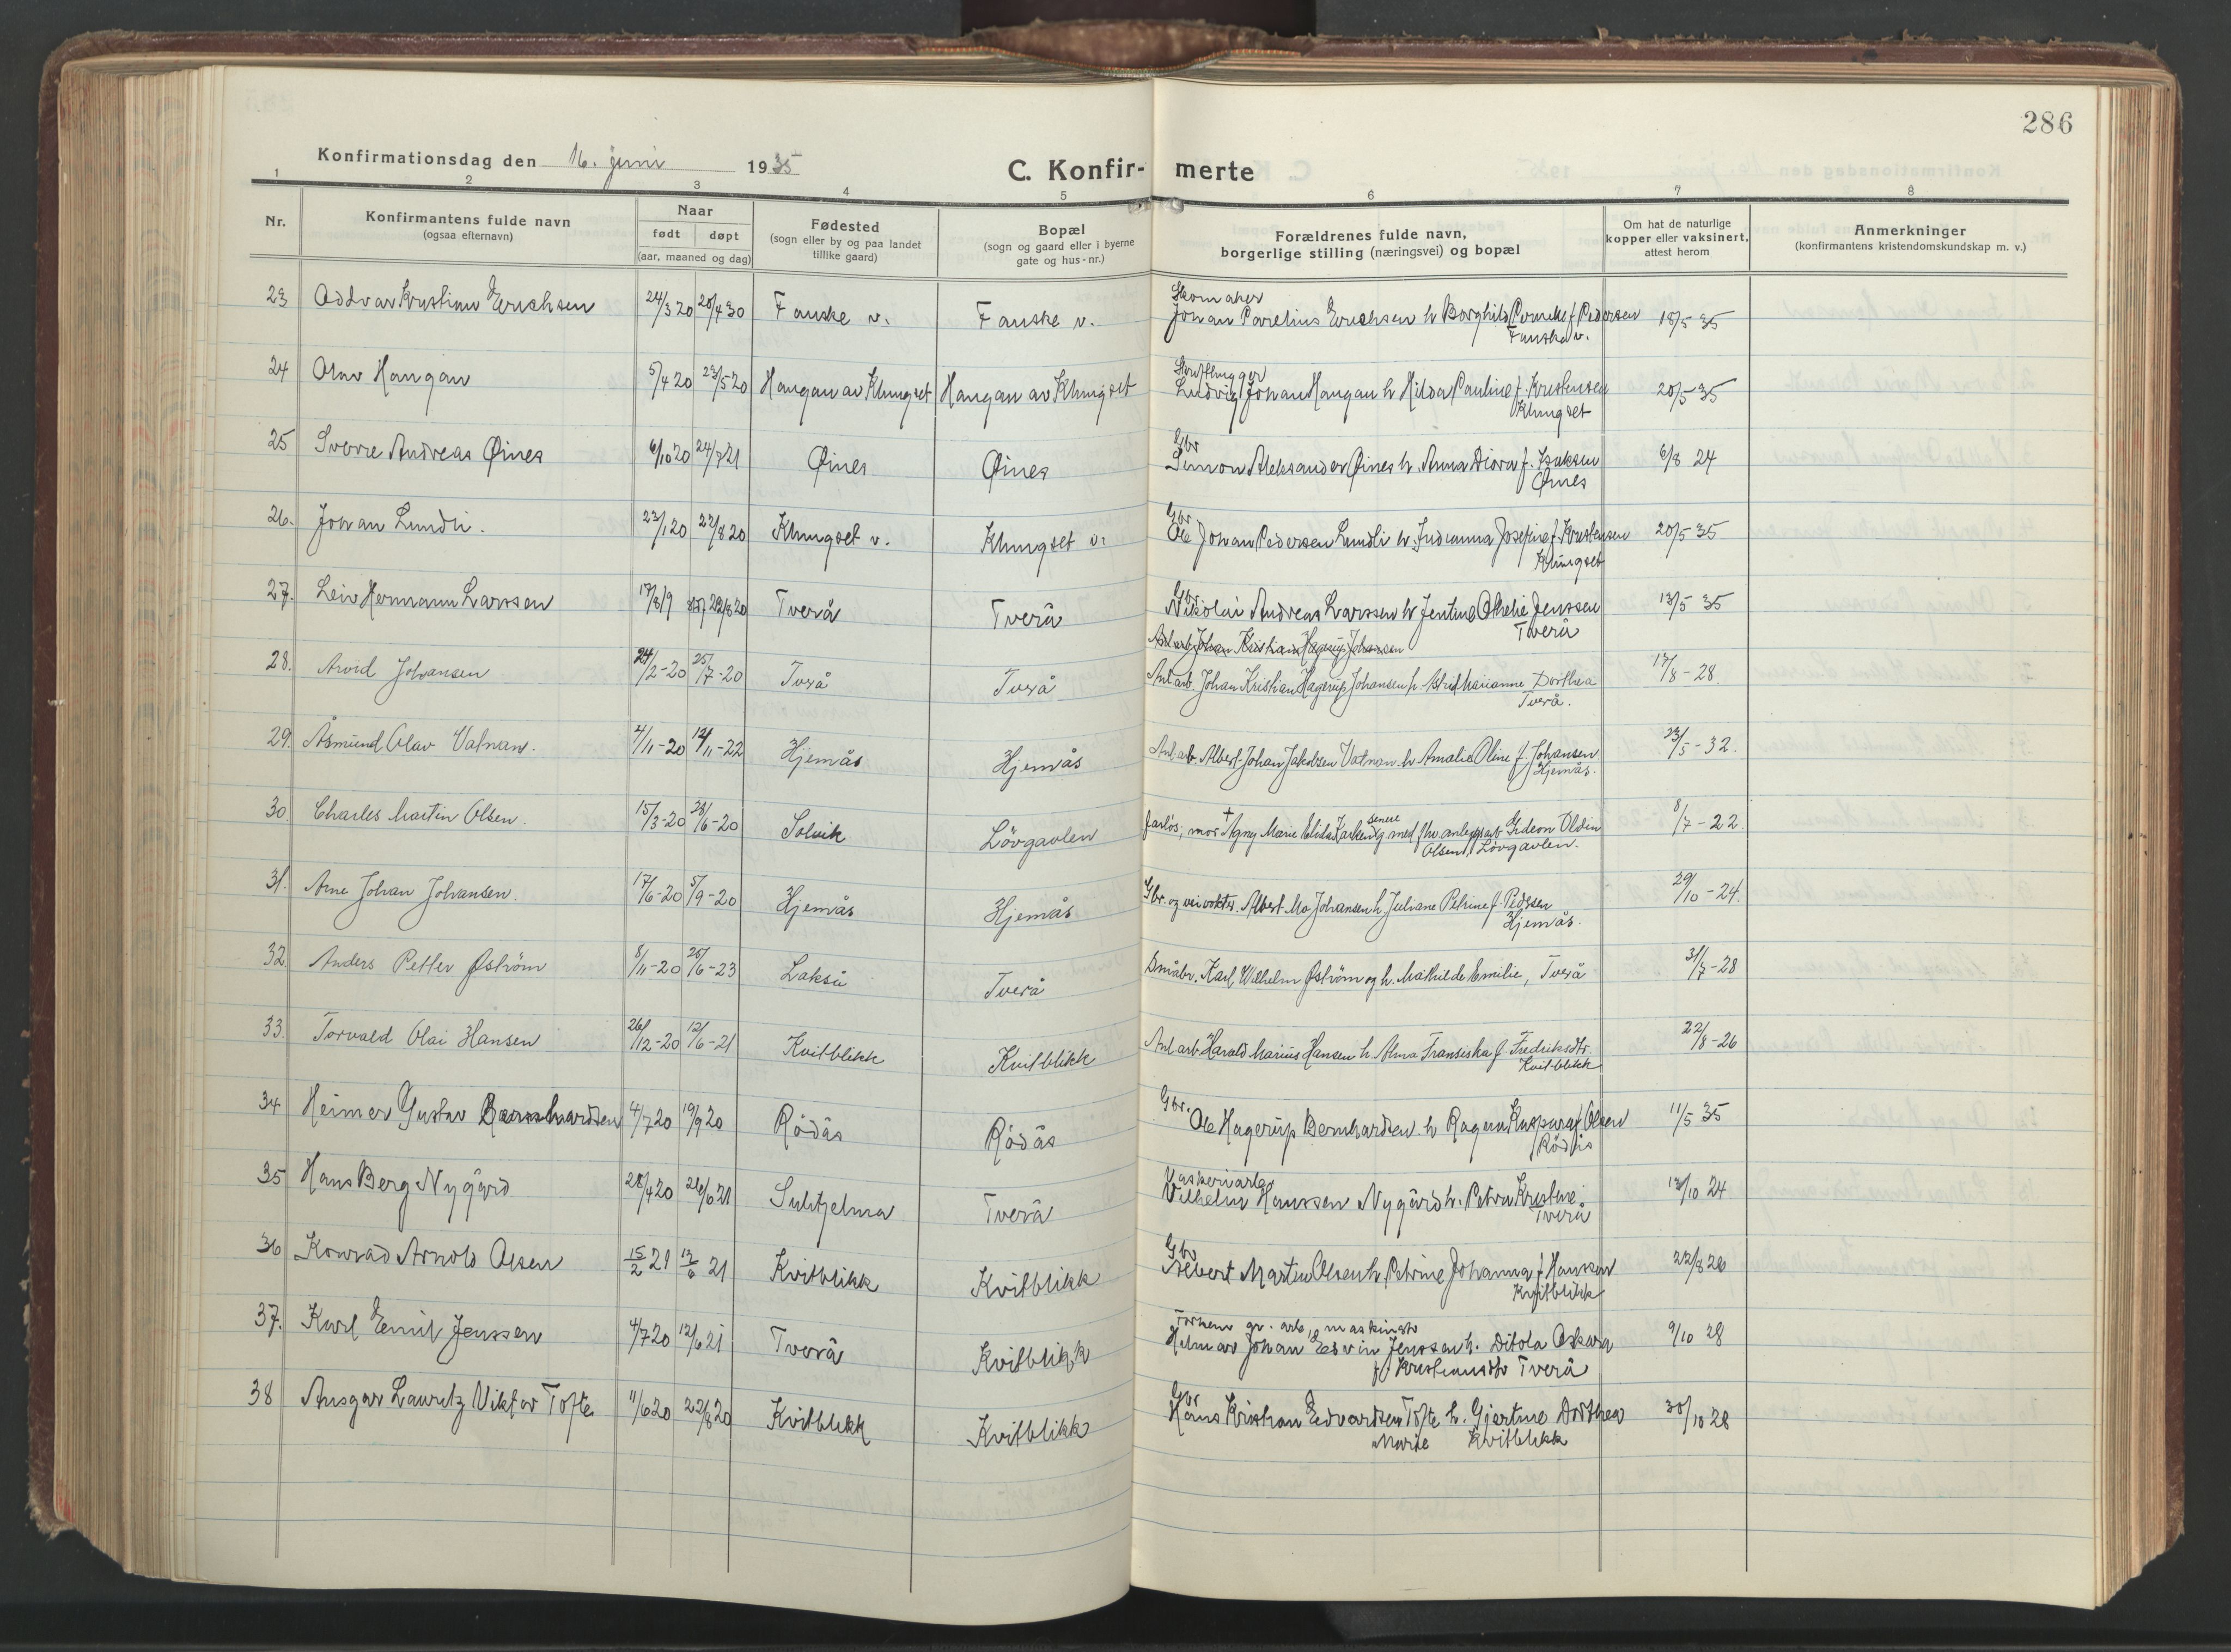 286
Konfirmationsdag den 16. juni 1935
C. Konfir- merte
1 2 3 4 5 6 7 8
Nr.
Konfirmantens fulde navn
(ogsaa efternavn)
Naar
født døpt
(aar, maaned og dag)
Fødested
(sogn eller by og paa landet
tillike gaard)
Bopæl
(sogn og gaard eller i byerne
gate og hus-nr.)
Forældrenes fulde navn,
borgerlige stilling (næringsvei) og bopæl
Om hat de naturlige
kopper eller vaksinert,
attest herom
Anmerkninger
(konfirmantens kristendomskundskap m. v.)
Skomaker
23 Oddvar Kristian Erichsen 24/3 20 Fauske v. Fauske v. Johan Parelius Erichsen h Borghild f. Pedersen 18/5 35
Fauske v.
24 Olav Haugan 5/4 20 23/5 20 Haugan av Klungset Haugan av Klungset Ludvig Johan Haugan h Hilda Pauline f. Kristensen 20/5 35
Klungset
Gbr
25 Sverre Andreas Øines 6/10 20 24/7 21 Øines Øines Simon Aleksander Øines h. Anna Diora f. Isaksen 6/8 24
Øines
Gbr
26. Johan Lundli. 23/1 20 22/8 20 Klungset v. Klungset v. Ole Johan Pedersen Lundli h. Indianna Josefine f. Kristensen 20/5 35
Klungset
Gbr
27. Leiv Hermann Larssen 17/8 19 Tverå Tverå Nikolai Andreas Larssen h Jentine Othelie Jenssen 13/5 35
Tverå
Anl arb. Johan Kristian Hagerup Johansen
28. Arvid Johansen 24/2-20 25/7-20 Tverå Tverå Anl arb. Johan Kristian Hagerup Johansen h Astrid Marianne Dorthea 17/8-28.
Tverå.
29. Åsmund Olav Vatnan. 4/11-20 12/11-22 Hjemås Hjemås Anl. arb. Albert Johan Jakobsen Vatnan h Amalie Oline f. Johansen 23/5-32.
Hjemås.
senere
30. Charles Martin Olsen. 15/3-20 26/6-20 Solvik Lövgavlen farlös, mor + Agny Marie Elida g. med fhv. anleggsarb Gideon Oldin 8/7-22.
Olsen, Lövgavlen.
31. Arne Johan Johansen. 17/6-20 5/9-20 Hjemås Hjemås Gbr. og veivokter. Albert Mo Johansen h. Juliane Petrine f. Pedersen 29/10-24.
Hjemås.
32. Anders Petter Öström 8/11-20 26/6-23 Lakså Tverå Småbr. Karl Wilhelm Öström og h. Mathilde Emilie, Tverå 31/7-28
33. Torvald Olai Hansen 26/12-20 12/6-21 Kvitblikk Kvitblikk Anl arb Harald Marius Hansen h. Alma Fransiska f Fredriksdtr 22/8-26
Kvitblikk
Gbr.
34 Heimer Gustav Bernhardsen 4/7 20 19/9 20 Rödås Rödås Ole Hagerup Bernhardsen h Ragna Kaspara f Olsen 11/5 35
Rödås
35 Hans Berg Nygård 28/4 20 26/6 21 Sulitjelma Tverå Vilhelm Hanssen Nygård h. Petra Kristine 13/10 24
Tverå
Gbr
36 Konrad Arnold Olsen 15/2 21 12/6 21 Kvitblikk Kvitblikk Sebert Martin Olsen h. Petrine Johanna f Hanssen 22/8 26
Kvitblikk
gr. arb, maskinstr
37. Karl Emil Jenssen 4/7 20 12/6 21 Tverå Kvitblikk Helmar Johan Edvin Jenssen h. Ditola Oskara 9/10 28
f. Kristiansdtr Tverå
Gbr
38 Ansgar Lauritz Viktor Tofte 11/6 20 22/8 20 Kvitblikk Kvitblikk Hans Kristian Edvardsen Tofte h. Gjertine Dorthea 30/10 28
Marie Kvitblikk